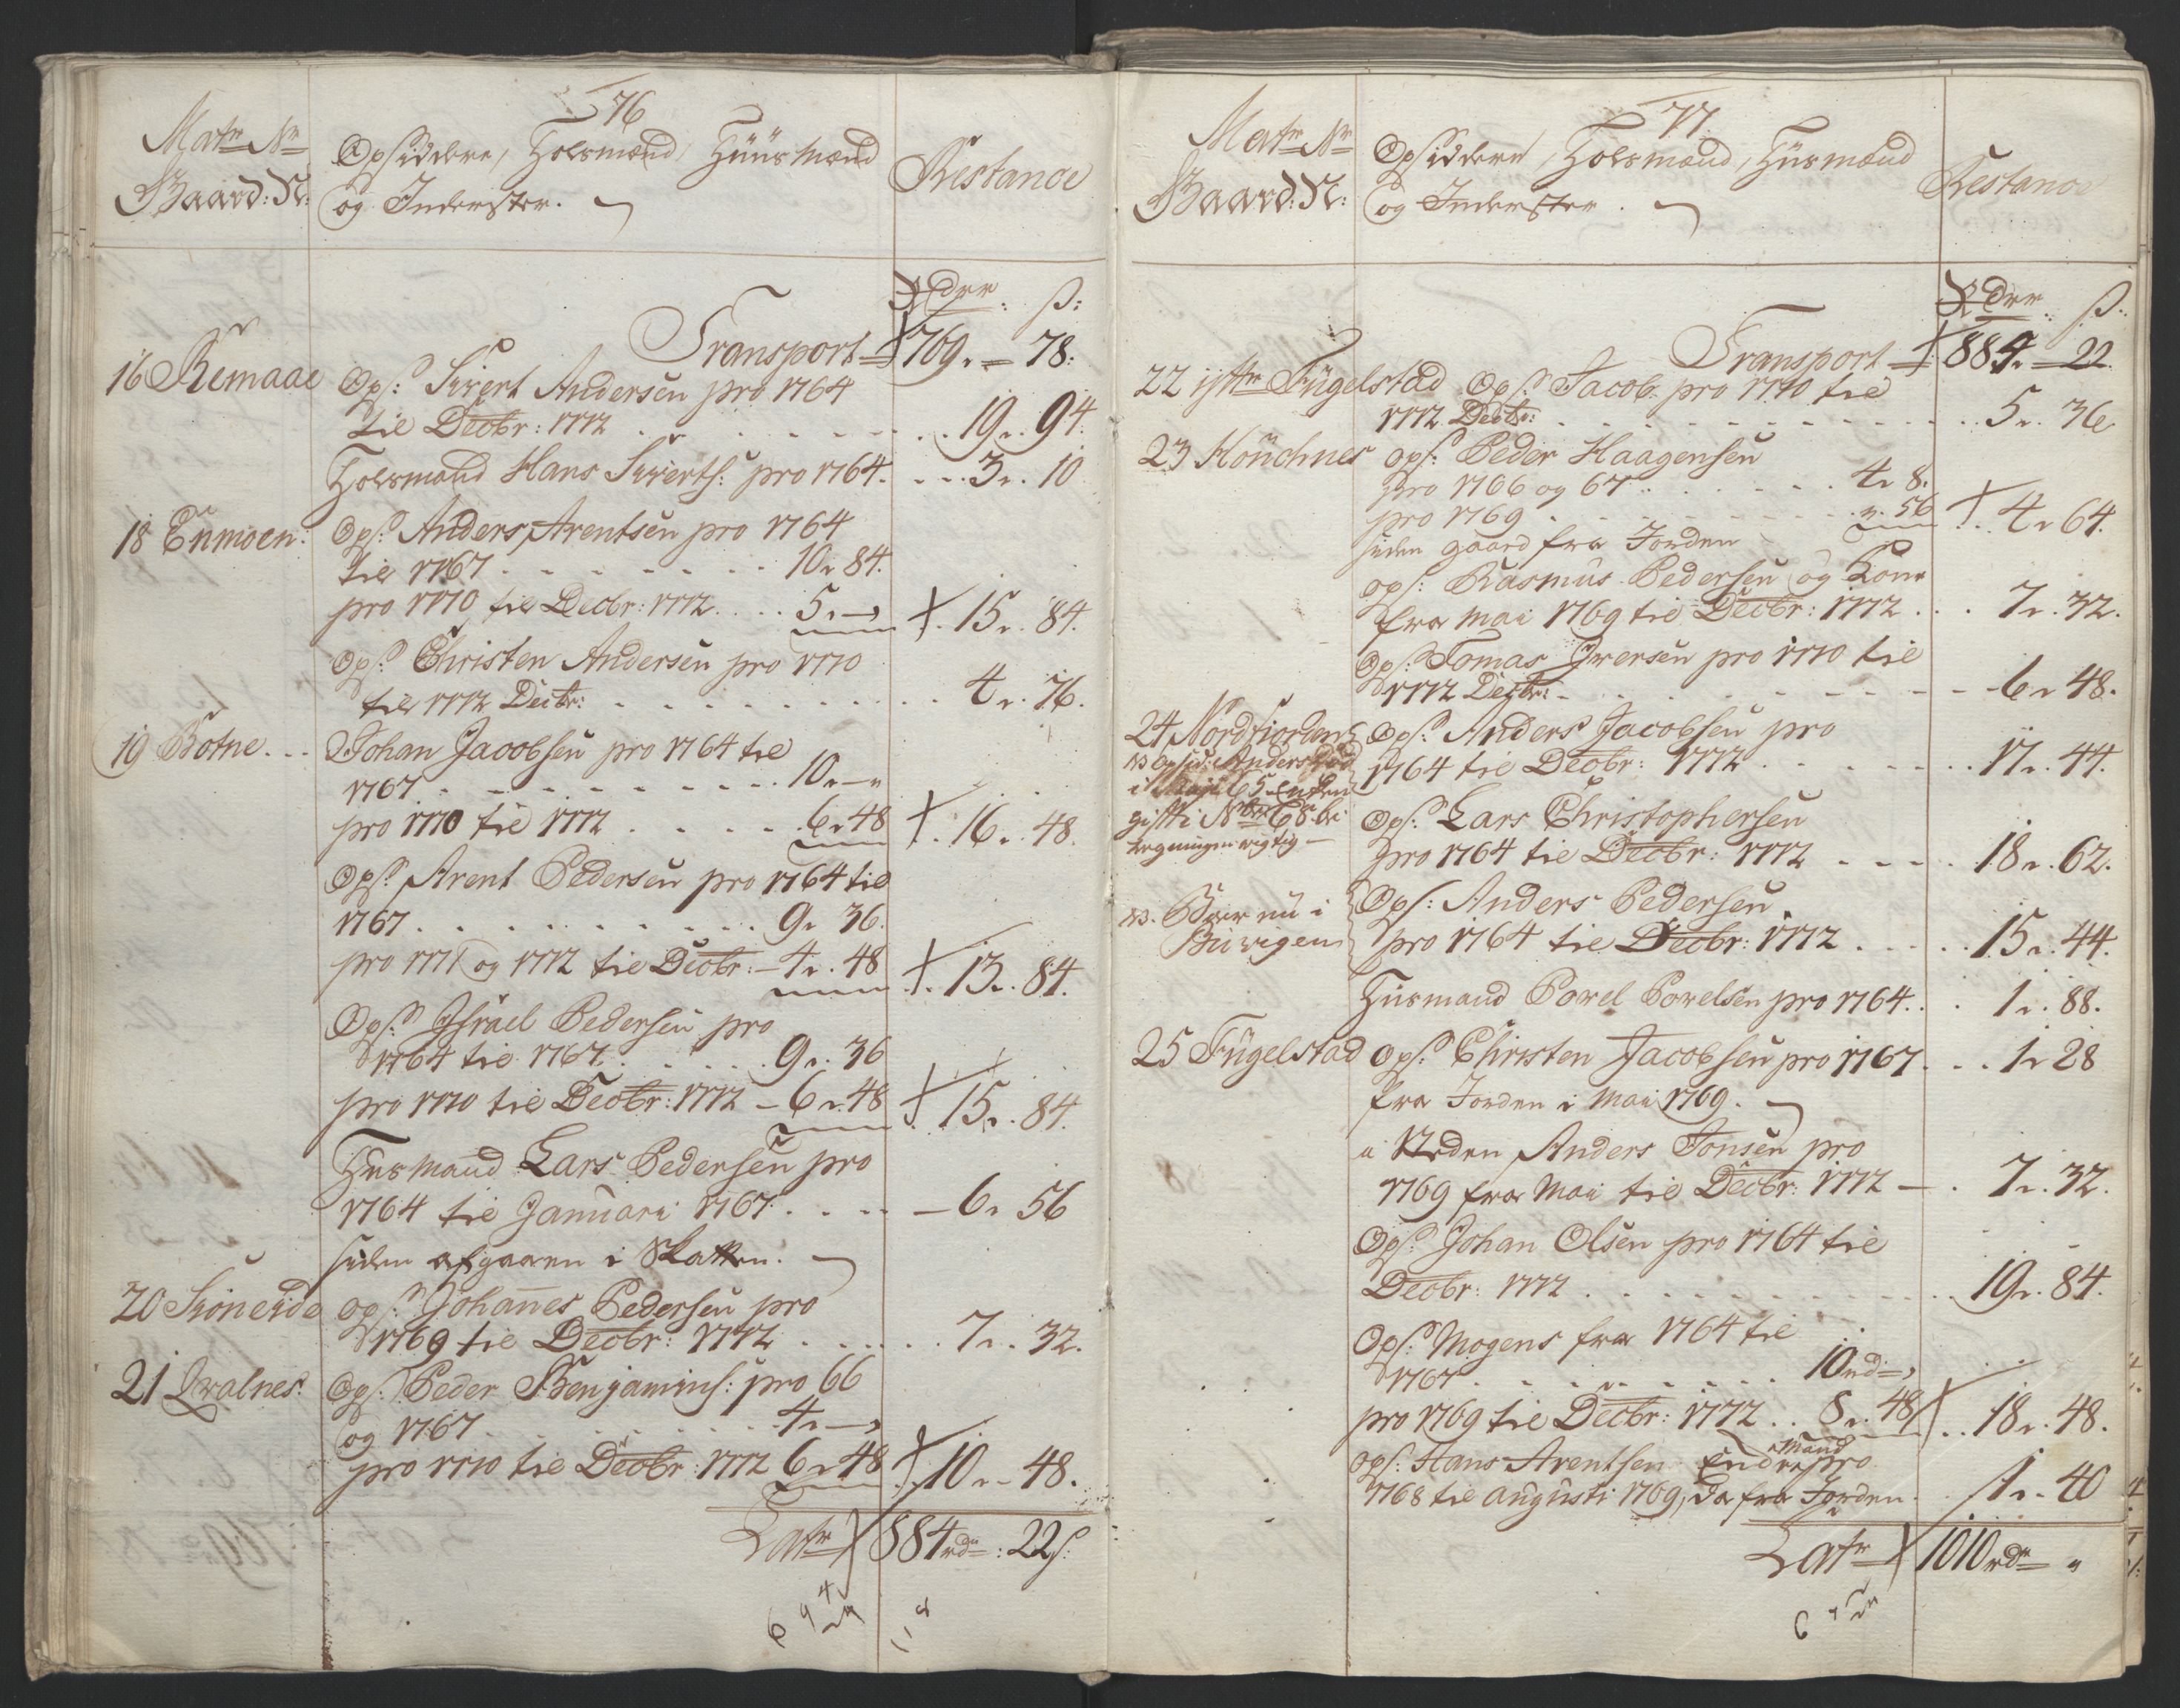 76
Matr Nr
Gaard: N:
Opsiddere, Holsmænd, Huusmænd
og Inderster.
Restance
Rdrr: ß:
Transport 769 r. 78:
16 Remaae Ops: Siwert Andersen pro 1764
til Decbr: 1772 . . . . 19 r. 94.
Holsmand Hans Siverts: pro 1764. . . . 3 r. 10
18 Enmoen: Ops: Anders Arentsen pro 1764
til 1767 . . . . 10 r 84.
pro 1770 til Decbr: 1772 . . . 5 r. — 15 r. 84.
Ops: Christen Andersen pro 1770
til 1772 Decbr: . . . . 4 r. 76.
19 Botne . . . Johan Jacobsen pro 1764 til
1767 . . . . 10 r — "
pro 1770 til 1772 . . . . 6 r 48 16 r. 48.
Ops: Arent Pedersen pro 1764 til
1767 . . . . 9 r 36.
pro 1771 og 1772 til Decbr: — 4 r. 48 13 r. 84.
Ops: Israel Pedersen pro
1764 til 1767 . . . . 9 r. 36
pro 1770 til Decbr: 1772 — 6 r. 48 15 r. 84.
Husmand Lars Pedersen pro
1764 til Januari 1767 . . . . — 6 r 56
siden afgaaen i Skatten.
20 Skoneide Ops: Johannes Pedersen pro
1769 til Decbr: 1772 . . . . 7 r. 32.
21 Qvalnes: Ops: Peder Benjamins: pro 66
og 1767 . . . . 4 r —
pro 1770 til Decbr: 1772 6 r 48 10 r - 48.
Latr 884 rdr: 22 ß:
77
Matr Nr
Gaard: N:
Opsiddere, Holsmænd, Husmænd
og Inderster.
Restance
Rdrr: ß:
Transport 884 r — 22.
22 ytter Fugelstad Ops: Jacob pro 1770 til
1772 Decbr: . . . . 5 r. 36
23 Ops: Peder Haagensen
pro 1766 og 67 . . . . 4 r 8.
pro 1769 . . . . r. 56 4 r 64.
siden gaaed fra Jorden
ops: Rasmus Pedersen og Kone
fra Mai 1769 til Decbr: 1772 . . . 7 r. 32.
Ops: Tomas Iversen pro 1770 til
1772 Decbr: . . . . 6 r 48.
24 Nordfiorden Ops: Anders Jacobsen pro
1764 til Decbr: 1772 . . . . 17 r. 44.
NB Opsid: Anders død
i 65 Enken
gift i 68. be
regningen rigtig —
Ops: Lars Christophersen
pro 1764 til Decbr: 1772 . . . . 18 r. 62.
NB. Boer nu i
Buvigen
Ops: Anders Pedersen
pro 1764 til Decbr: 1772 . . . . 15 r. 44.
Husmand Povel Povelsen pro 1764 . . . 1 r. 88.
25 Fugelstad Ops: Christen Jacobsen pro 1767 . . . 1 r 28
fra Jorden i Mai 1769.
a Steden Anders Jonsen pro
1769 fra Mai til Decbr: 1772 — . 7 r. 32.
Ops: Johan Olsen pro 1764 til
Decbr: 1772 . . . . 19 r. 84.
Ops: Mogens fra 1764 til
1767 . . . . 10 rd —
pro 1769 til Decbr: 1772 . . 8 r. 48 18 r. 48.
Ops: Hans Arentsen Endre Mand pro
1768 til Augusti 1769, da fra Jorden . 1 r. 40
Latr 1010 rdr "